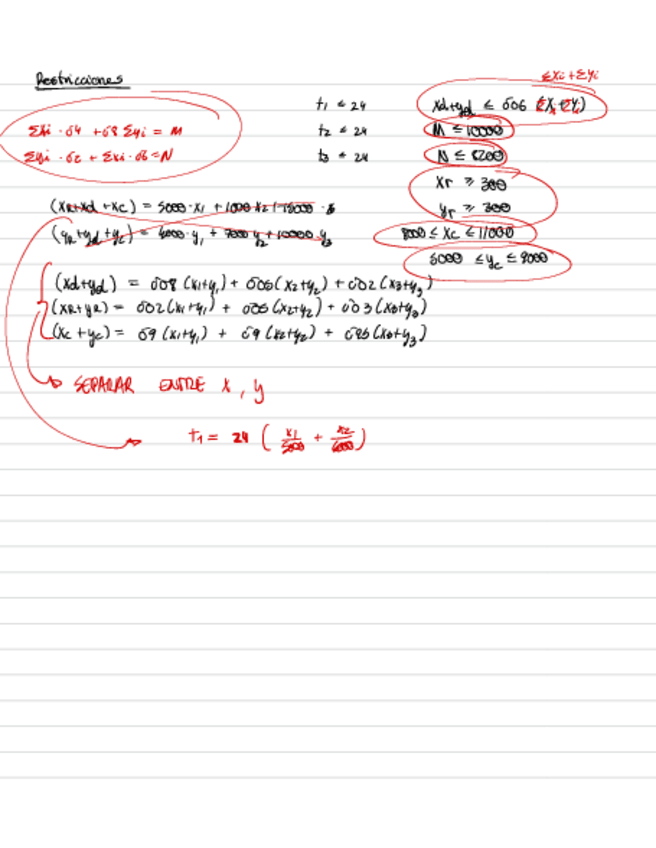 Restricciones
Σxi + Σyi
Σxi · 0'4 + 0'8 Σyi = M
Σyi · 0'2 + Σxi · 0'6 = N
t1 ≤ 24
t2 ≤ 24
t3 ≤ 24
xd+yd ≤ 0'06
M ≤ 10000
N ≤ 8200
xr ≥ 300
yr ≥ 300
8000 ≤ xc ≤ 11000
5000 ≤ yc ≤ 9000
(xR+xd+xc) = 5000·x1 +
(yR+yd+yc) = y1 + y2 + 10000 y3
(xd+yd) = 0'08 (x1+y1) + 0'05 (x2+y2) + 0'02 (x3+y3)
(xR+yR) = 0'02 (x1+y1) + 0'05 (x2+y2) + 0'03 (x3+y3)
(xc+yc) = 0'9 (x1+y1) + 0'9 (x2+y2) + 0'95 (x3+y3)
SEPARAR ENTRE x, y
t1 = 24 ( x1/5000 + x2/6000 )